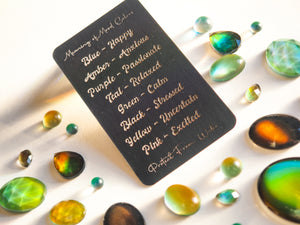 Meaning of Mood Colors
Blue - Happy
Amber - Anxious
Purple - Passionate
Teal - Relaxed
Green - Calm
Black - Stressed
Yellow - Uncertain
Pink - Excited
Protect From Water